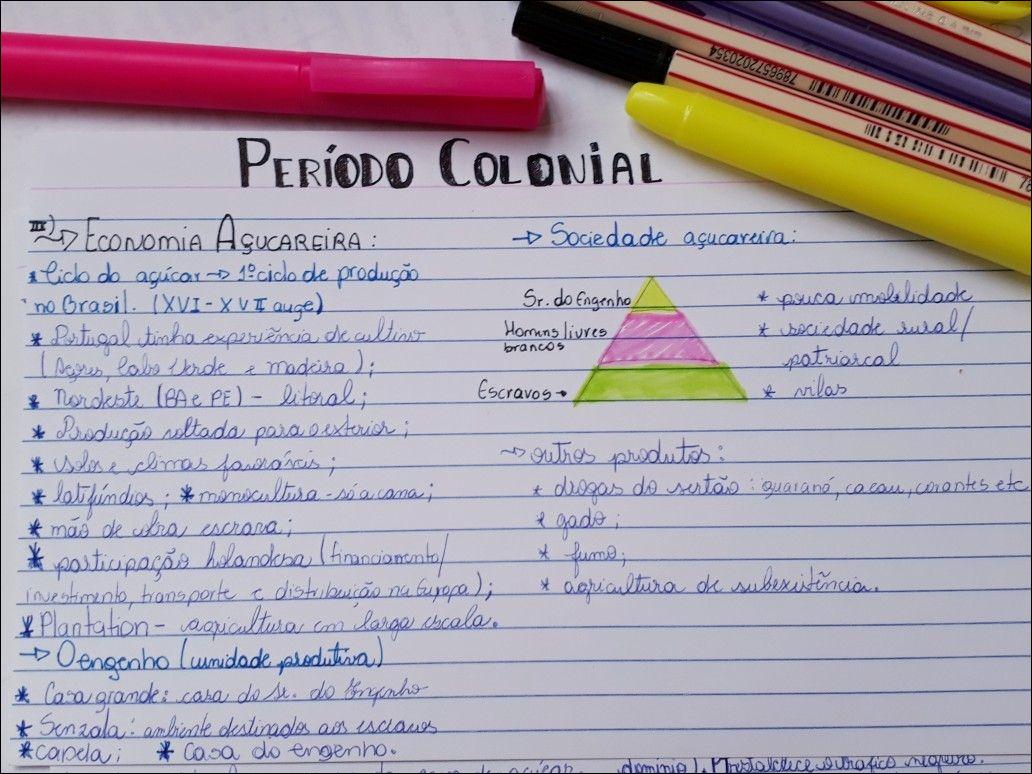 7896572020354
PERÍODO COLONIAL
III) → ECONOMIA AÇUCAREIRA:
* Ciclo do açúcar → 1º ciclo de produção
no Brasil. (XVI - XVII auge)
* Portugal tinha experiência de cultivo
(Açores, Cabo Verde e madeira);
* Nordeste (BA e PE) - litoral;
* Produção voltada para o exterior;
* solos e climas favoráveis;
* latifúndios; * monocultura - só a cana;
* mão de obra escrava;
* participação holandesa (financiamento/
investimento, transporte e distribuição na Europa);
* Plantation - agricultura em larga escala.
→ O engenho (unidade produtiva)
* Casa grande: casa do Sr. do Engenho
* Senzala: ambiente destinados aos escravos
* capela; * Casa do engenho.
→ Sociedade açucareira:
Sr. do Engenho
Homens livres
brancos
Escravos →
* pouca mobilidade
* sociedade rural/
patriarcal
* vilas
→ outros produtos:
* drogas do sertão: guaraná, cacau, corantes etc
* gado;
* fumo;
* agricultura de subexistência.
de açúcar. domínio). Fortalece o tráfico negreiro.